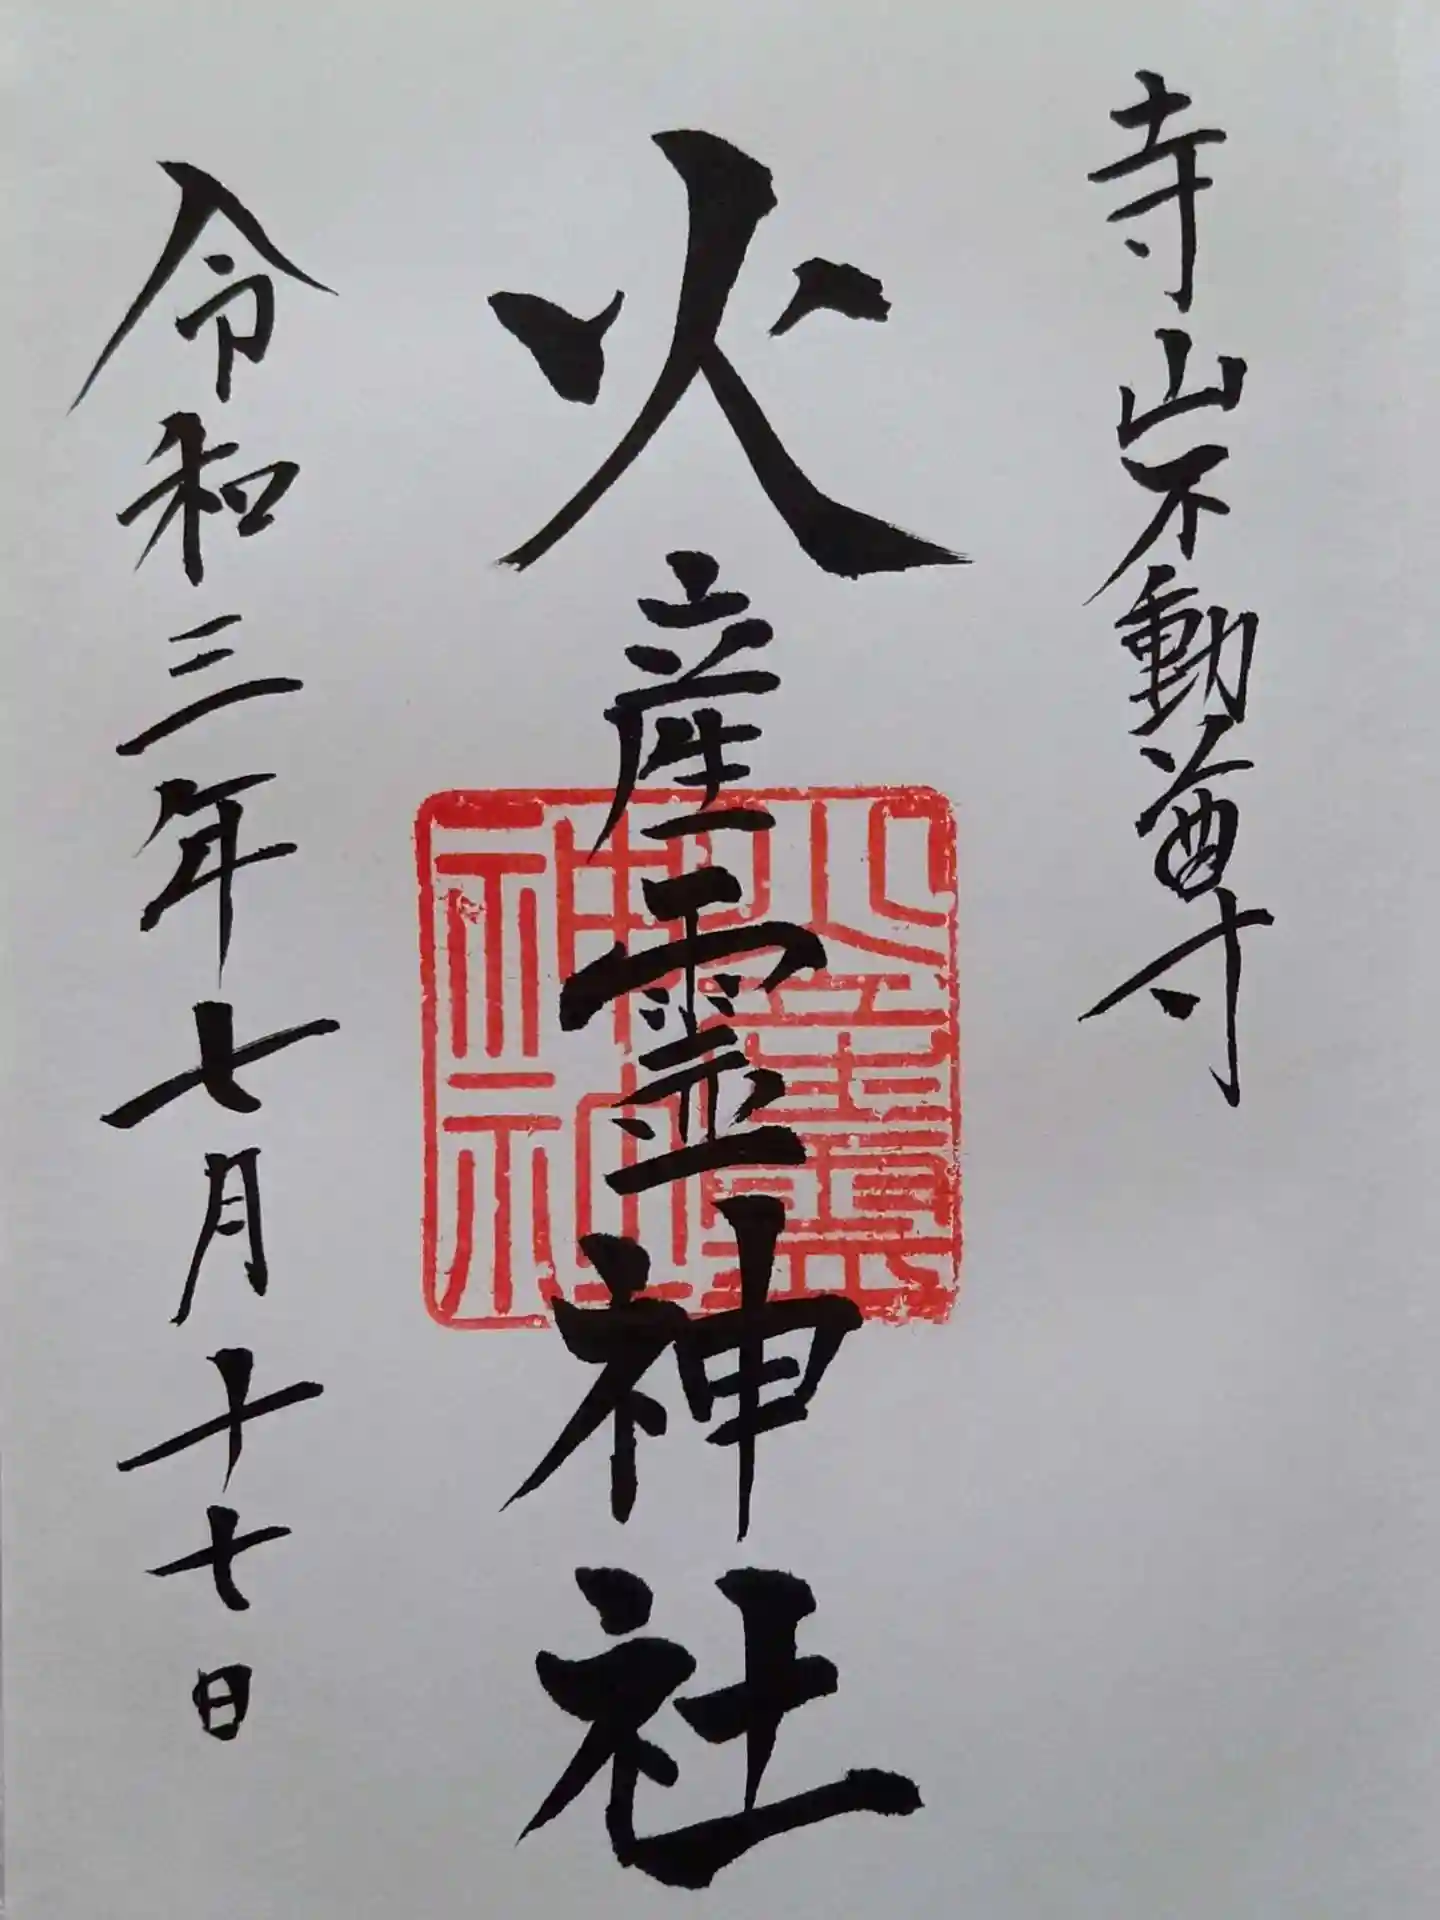 寺山不動尊
火産霊神社
火産霊
神社
令和三年七月十七日